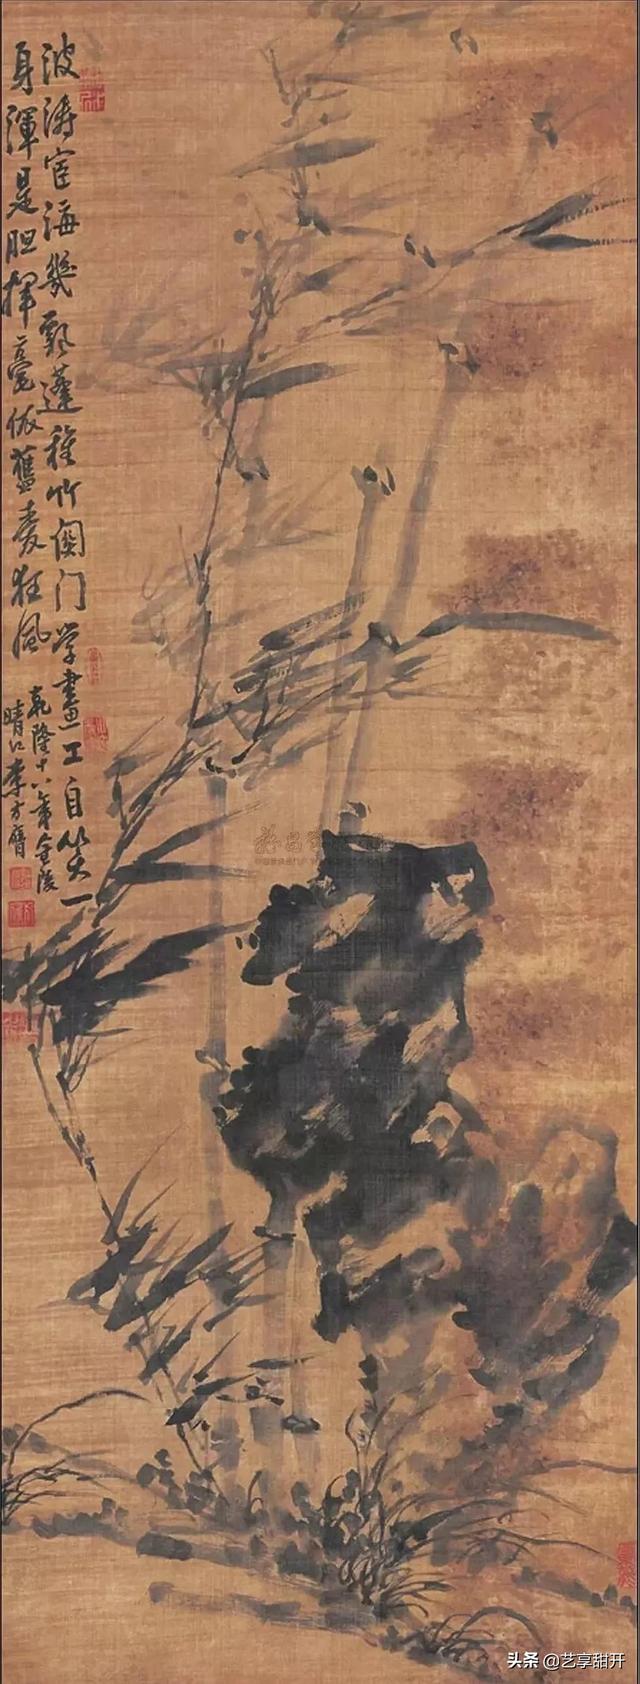 波涛宦海幾飘蓬種竹関门学畫工自笑一
身渾是胆揮毫依舊爱狂風
乾隆十八年金陵
晴江李方膺
头条 @艺享甜开